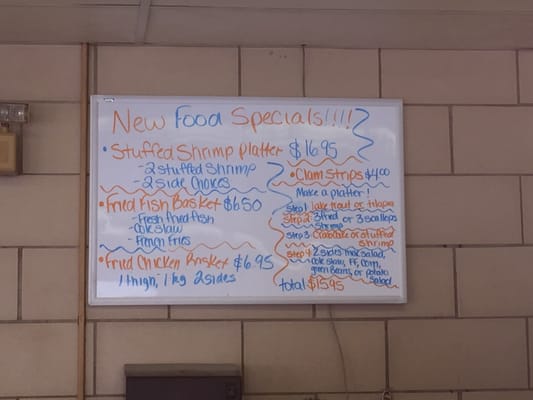 New Food Specials!!!!
• Stuffed Shrimp Platter $16.95
- 2 stuffed Shrimp
- 2 side Choices
• Fried Fish Basket $6.50
- Fresh fried fish
- Cole slaw
- French Fries
• Fried Chicken Basket $6.95
1 thigh, 1 leg 2 sides
• Clam Strips $4.00
Make a platter!
Step 1 lake trout or tilapia
Step 2 3 fried or 3 scallops
shrimp
Step 3 Crabcake or stuffed
shrimp
Step 4 2 sides tric salad,
cole slaw, FF, corn,
green beans, or potato
salad
total $15.95